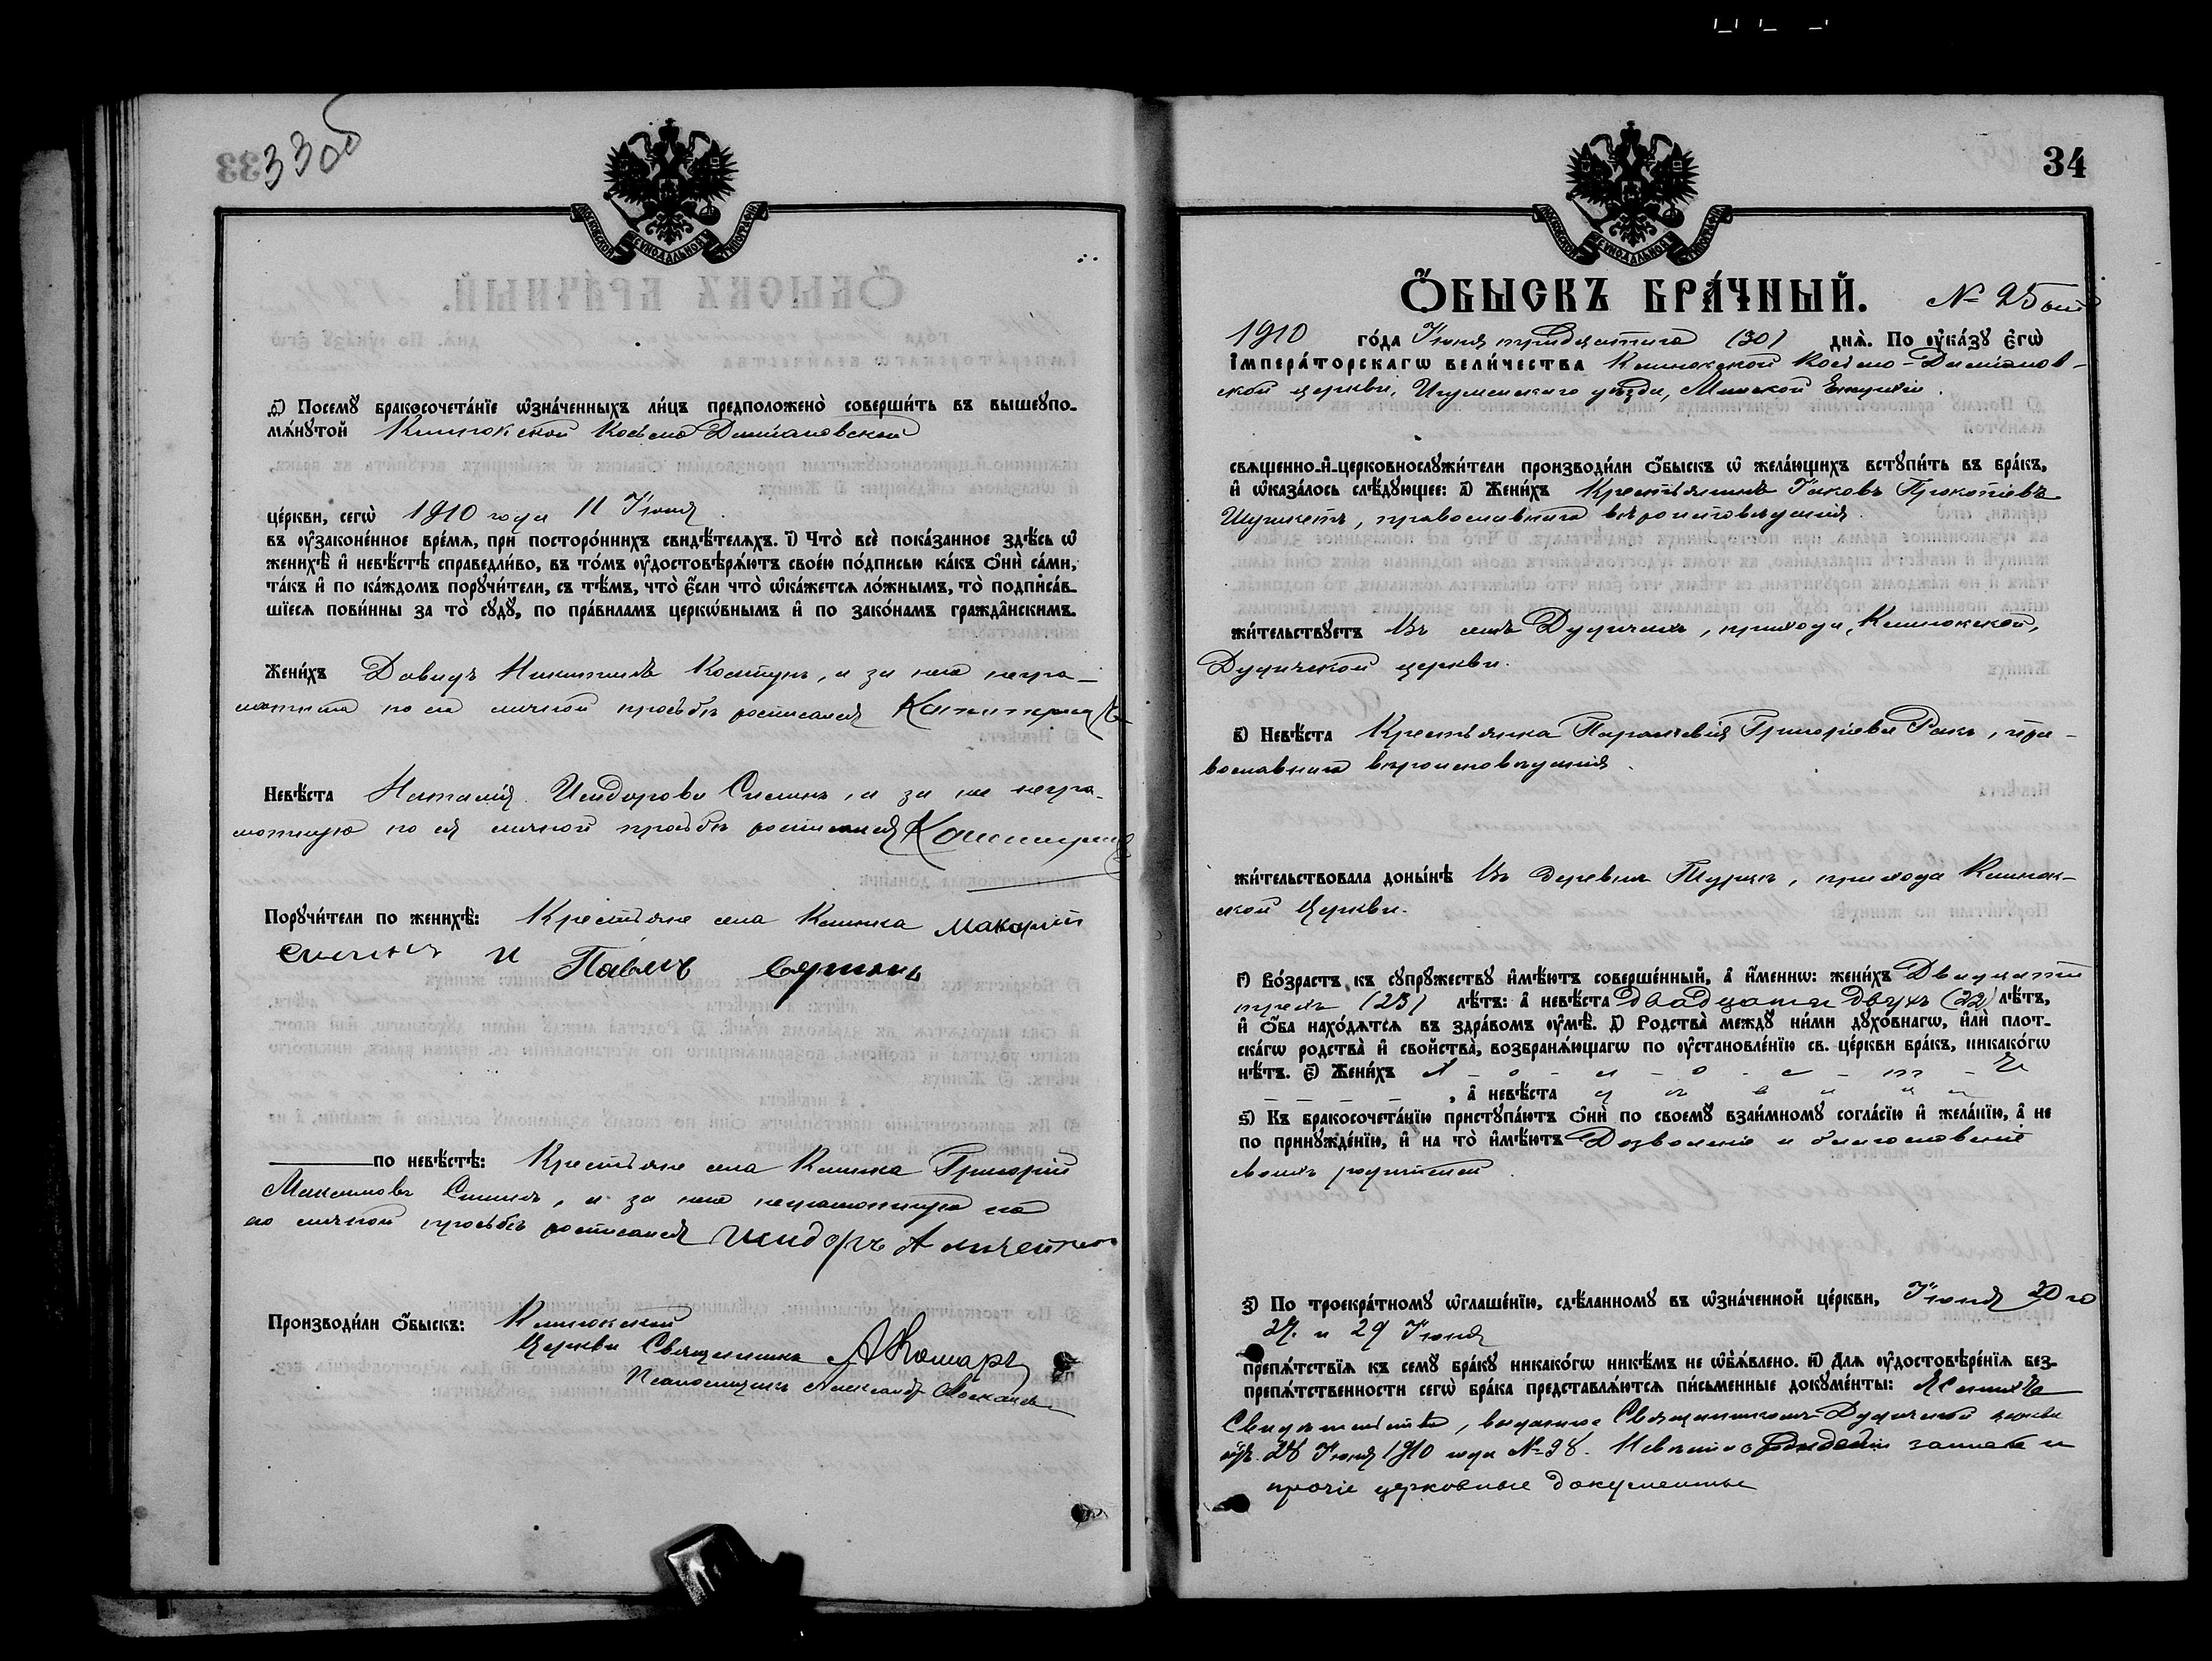 33об
МОСКОВСКОЙ СѴНОДАЛЬНОЙ ТИПОГРАФІИ
д҃і) Посемꙋ̀ бракосочета́нїе ѡ҆зна́ченныхъ ли́цъ предположено̀ соверши́ть въ вышеꙋпо-
мѧ́нꙋтой Клинокской Косьмо Даміановской
це́ркви, сегѡ̀ 1910 года 11 Іюня
въ ѹ҆законе́нное вре́мѧ, при посторо́ннихъ свидѣ́телѧхъ. і҃) Что̀ всѐ пока́занное здѣ́сь ѡ҆
женихѣ̀ и҆ невѣ́стѣ справедли́во, въ то́мъ ѹ҆достовѣрѧ́ютъ свое́ю по́дписью ка́къ ѻ҆нѝ са́ми,
та́къ и҆ по ка́ждомъ порꙋчи́тели, съ тѣ́мъ, что̀ є҆́сли что̀ ѡ҆ка́жется ло́жнымъ, то̀ подписа́в-
шїесѧ пови́нны за то̀ сꙋдꙋ̀, по пра́вилamъ церко́внымъ и҆ по зако́намъ гражда́нскимъ.
Жени́хъ Давидъ Никитинъ Костунъ, а за него негра-
мотнаго по его личной просьбѣ росписался
Невѣ́ста Наталія Исидорова Силинъ, а за нее негра-
мотную по ея личной просьбѣ росписался
Порꙋчи́тели по женихѣ̀: Крестьяне села Клинка Макарій
Силинъ и Павелъ
по невѣ́стѣ: Крестьяне села Клинка Григорій
Максимовъ Силинъ, а за него неграмотнаго по
его личной просьбѣ росписался Исидоръ
Производи́ли ѻ҆́быскъ: Клинокской
Церкви Священникъ А Комаръ
Псаломщикъ Александр
34
МОСКОВСКОЙ СѴНОДАЛЬНОЙ ТИПОГРАФІИ
Ѻ҆́БЫСКЪ БРА́ЧНЫЙ. № 25ый
1910 го́да Іюня тридцатаго (30) днѧ̀. По ѹ҆ка́зꙋ є҆гѡ̀
і҆мпера́торскагѡ вели́чества Клинокской Косьмо-Даміанов-
ской церкви, Игуменскаго уѣзда, Минской Епархіи.
свѧщенно-и҆-церковнослꙋжи́тели производи́ли ѻ҆́быскъ ѡ҆ жела́ющихъ встꙋпи́ть въ бра́къ,
и҆ ѡ҆каза́лось слѣ́дꙋющее: а҃) Жени́хъ Крестьянинъ Іаковъ Прокопіевъ
православнаго вѣроисповѣданія.
жи́тельствꙋетъ Въ селѣ Дудичахъ, прихода, Клинокской,
Дудичской церкви.
в҃) Невѣ́ста Крестьянка Параскевія Григоріева Ракъ, пра-
вославнаго вѣроисповѣданія.
жи́тельствовала доны́нѣ Въ деревнѣ Турцѣ, прихода Клинок-
ской Церкви.
г҃) Во́зрастъ къ сꙋпрꙋжествꙋ и҆мѣ́ютъ соверше́нный, а҆ и҆́менно: жени́хъ Двадцати
трехъ (23) лѣ́тъ: а҆ невѣ́ста двадцати двухъ (22) лѣ́тъ,
и҆ ѻ҆́ба нахо́дѧтсѧ въ здра́вомъ ѹ҆мѣ̀. д҃) Родства̀ междꙋ̀ ни́ми дꙋхо́внагѡ, и҆лѝ плот-
ска́гѡ родства̀ и҆ свойства̀, возбранѧ́ющагѡ по ѹ҆становле́нїю св. це́ркви бра́къ, никако́гѡ
нѣ́тъ. є҃) Жени́хъ х - о - л - о - с - т - ъ
, а҆ невѣ́ста д ѣ в и ц а
ѕ҃) Къ бракосочета́нїю пристꙋпа́ютъ ѻ҆нѝ по своемꙋ̀ взаи́мномꙋ согла́сїю и҆ жела́нїю, а҆ не
по принꙋжде́нїю, и҆ на то̀ и҆мѣ́ютъ Дозволеніе и благословеніе
своихъ родителей.
з҃) По троекра́тномꙋ ѡ҆глаше́нїю, сдѣ́ланномꙋ въ ѡ҆зна́ченной це́ркви, Іюня 20 го
27. и 29 Іюня
препѧ́тствїѧ къ семꙋ̀ бра́кꙋ никако́гѡ никѣ́мъ не ѡ҆б̾ѧ́влено. и҃) Длѧ ѹ҆достовѣре́нїѧ без-
препѧ́тственности сегѡ̀ бра́ка представлѧ́ютсѧ пи́сьменные докꙋме́нты: Жениха
Свидѣтельство, выданное Священникомъ Дудичской церкви
отъ 28 Іюня 1910 года № 98. Невѣсты
прочіе церковные документы